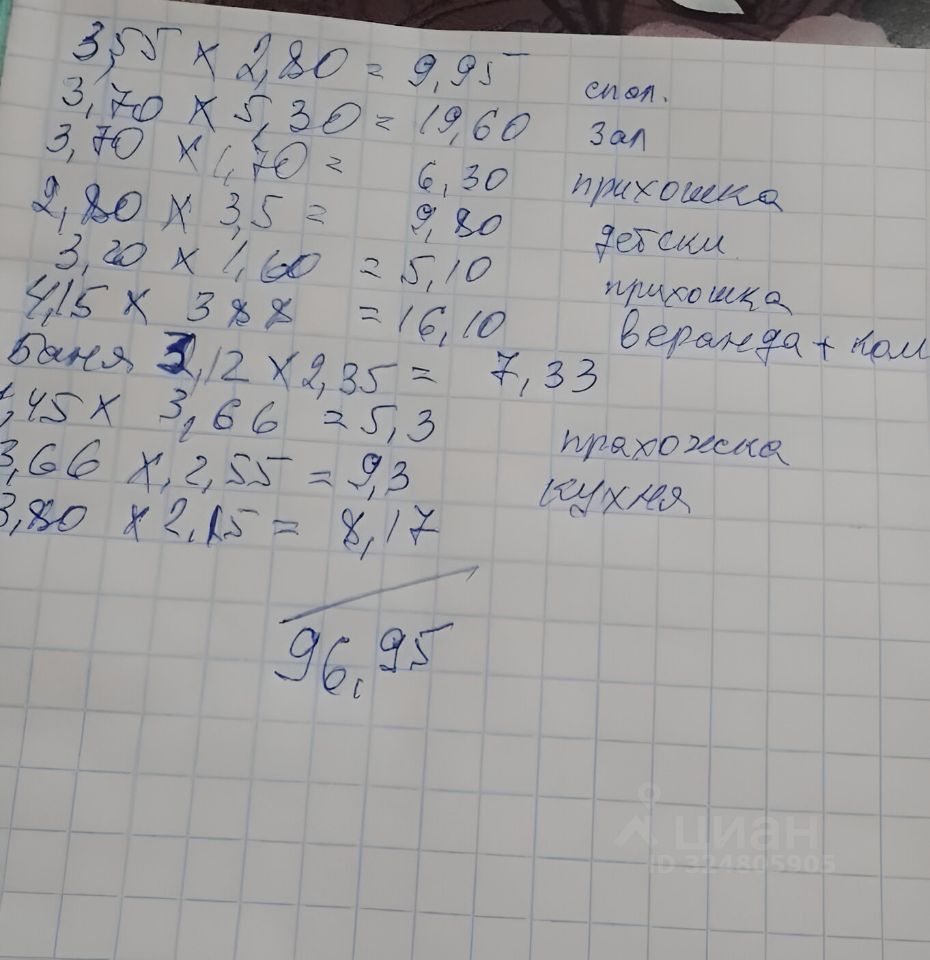 3,55 x 2,80 = 9,95 спал.
3,70 x 5,30 = 19,60 зал
3,70 x 1,70 = 6,30 прихошка
2,80 x 3,5 = 9,80 детски
3,20 x 1,60 = 5,10 прихошка
4,15 x 3 8 8 = 16,10 веранда + ком
Баня 3,12 x 2,35 = 7,33
1,45 x 3,66 = 5,3 прахожка
3,66 x 2,55 = 9,3 кухня
3,80 x 2,15 = 8,17
96,95
циан
ID 324805905